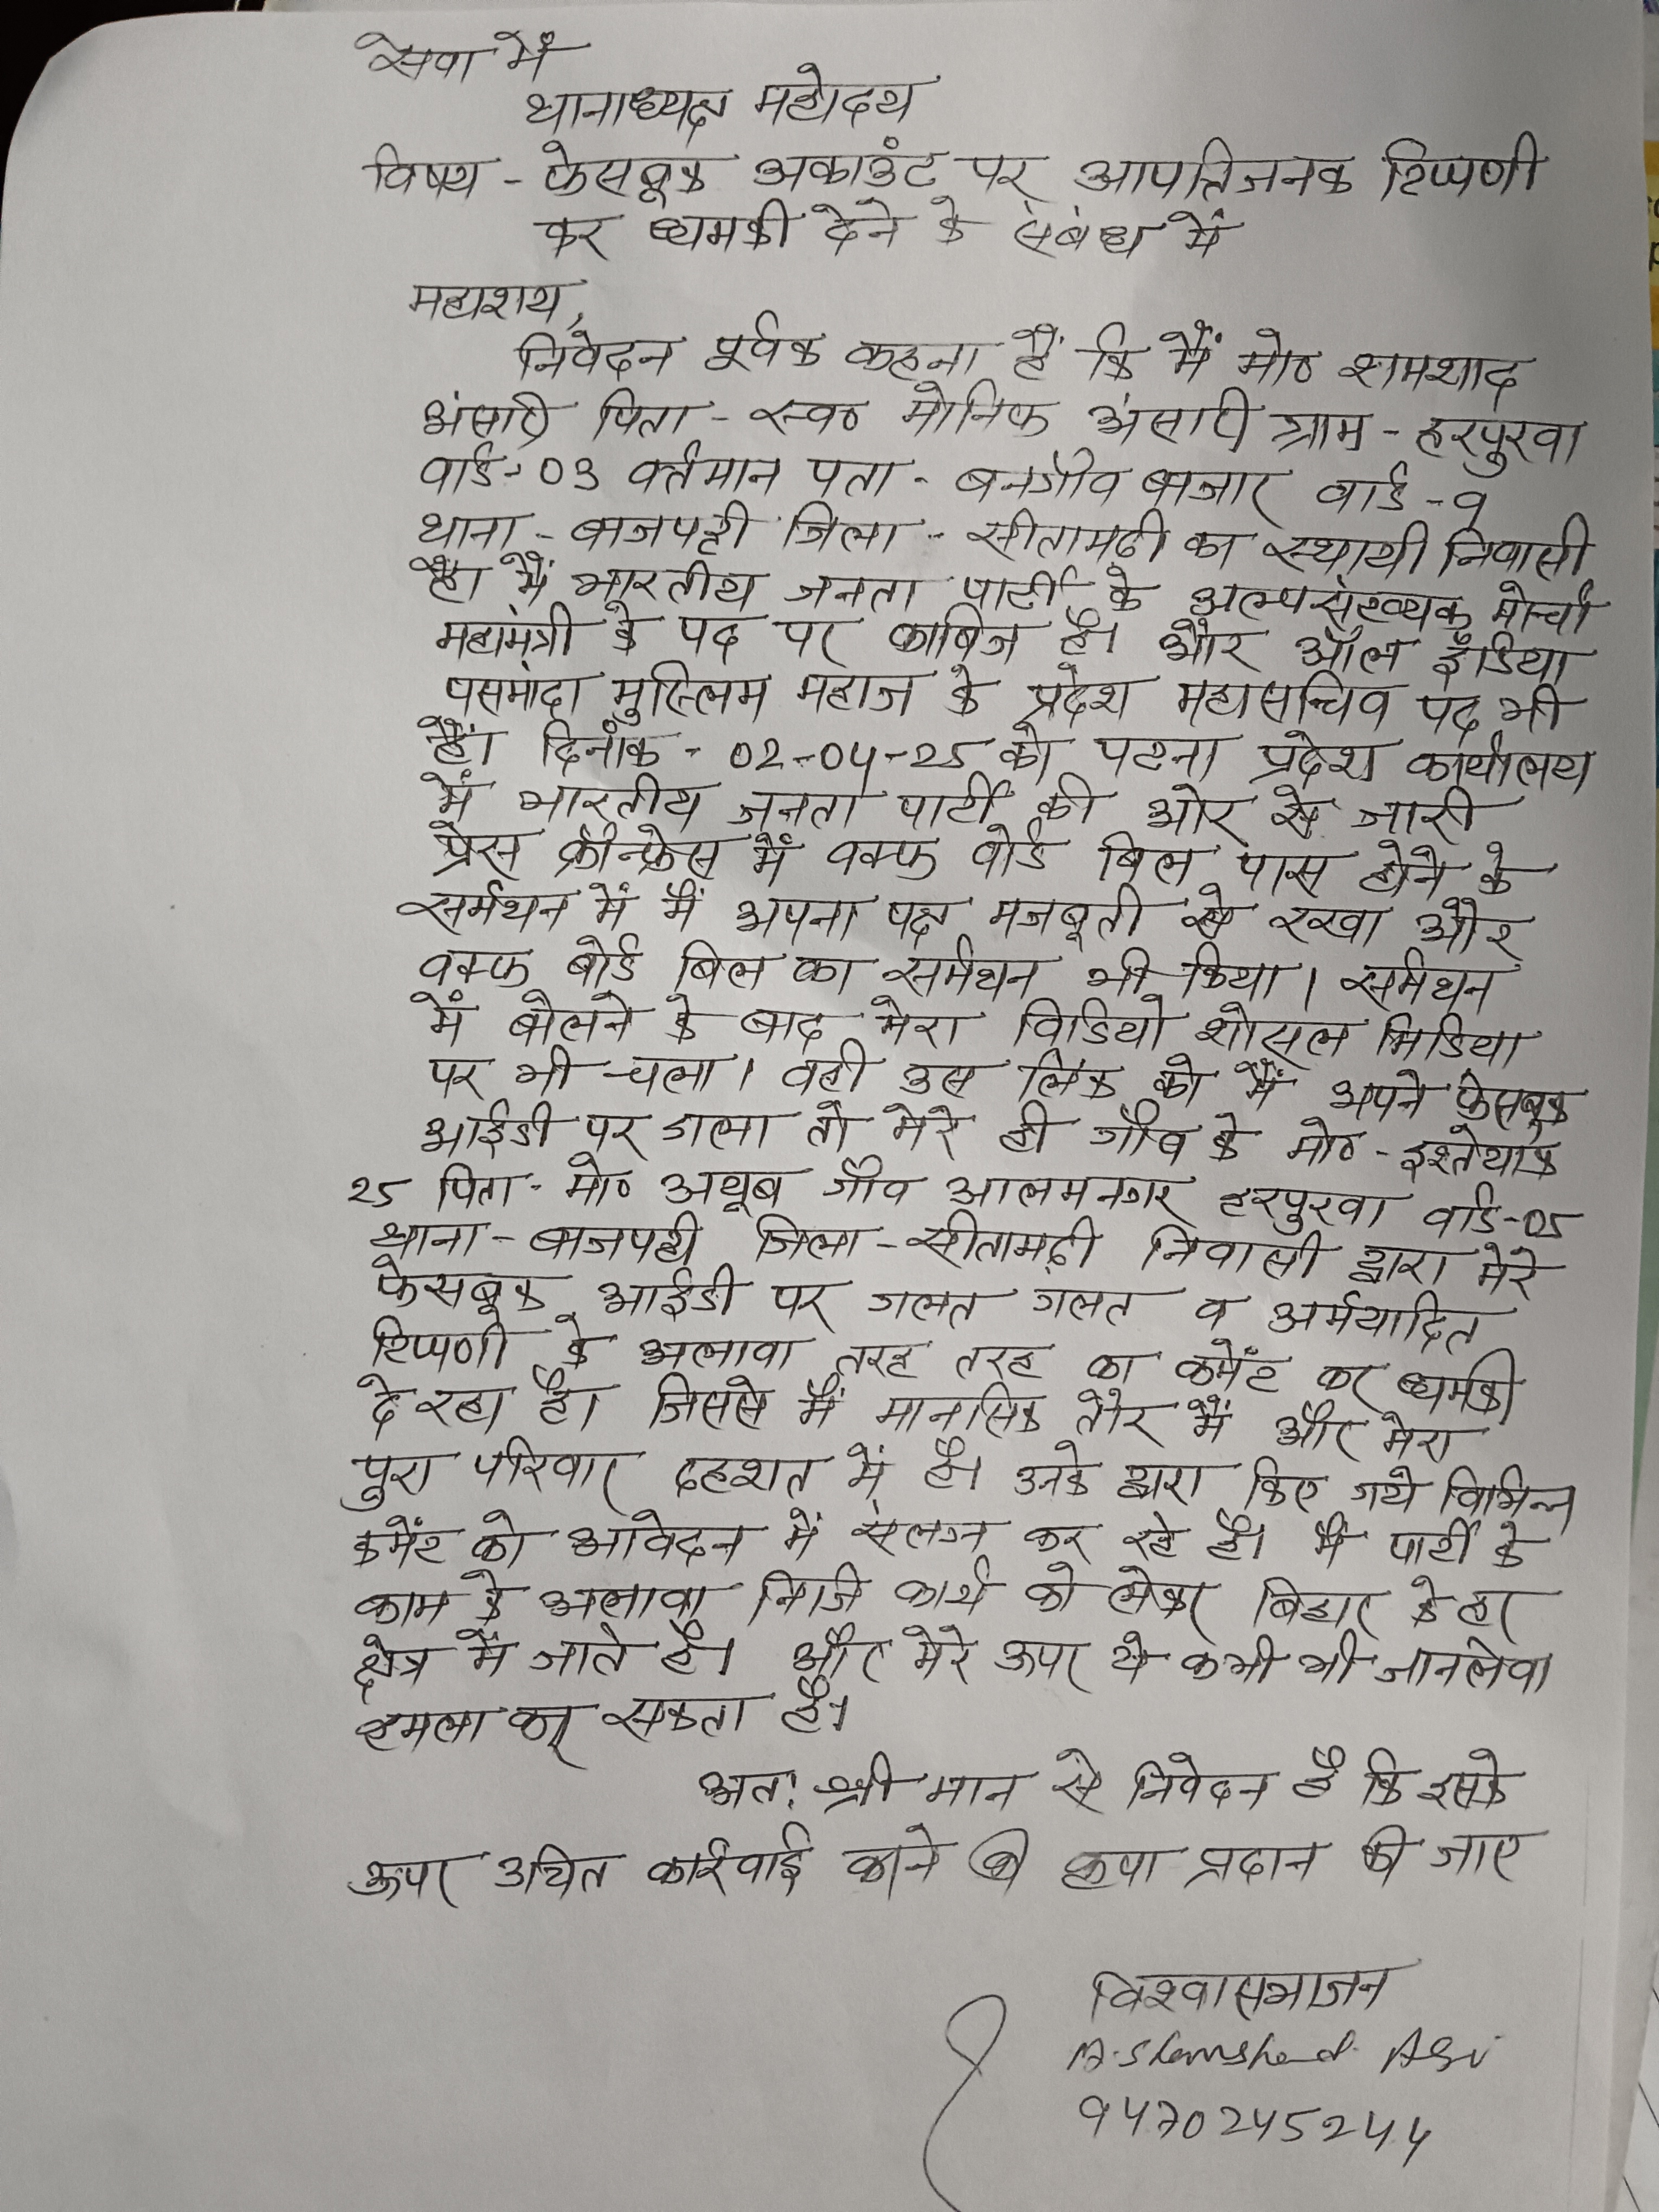 सेवा में
थानाध्यक्ष महोदय
विषय - फेसबूक अकाउंट पर आपत्तिजनक टिप्पणी
कर धमकी देने के संबंध में
महाशय,
निवेदन पूर्वक कहना है कि मैं मो० शमशाद
अंसारी पिता - स्व० मोनिफ अंसारी ग्राम - हरपुरवा
वार्ड - 03 वर्तमान पता - बनगाँव बाजार वार्ड - 9
थाना - बाजपट्टी जिला - सीतामढ़ी का स्थायी निवासी
है। मैं भारतीय जनता पार्टी के अल्पसंख्यक मोर्चा
महामंत्री के पद पर काबिज है। और ऑल इंडिया
पसमांदा मुस्लिम महाज के प्रदेश महासचिव पद भी
है। दिनांक - 02-04-25 को पटना प्रदेश कार्यालय
में भारतीय जनता पार्टी की ओर से जारी
प्रेस कॉन्फ्रेस में वक्फ वोर्ड बिल पास होने के
सर्मथन में मैं अपना पक्ष मजबूती से रखा और
वक्फ बोर्ड बिल का सर्मथन भी किया। सर्मथन
में बोलने के बाद मेरा विडियो शोसल मिडिया
पर भी चला। वही उस लिंक को मैं अपने फेसबूक
आईडी पर डाला तो मेरे ही गाँव के मो० - इश्तेयाक
25 पिता - मो० अयूब गाँव आलमनगर हरपुरवा वार्ड - 05
थाना - बाजपट्टी जिला - सीतामढ़ी निवासी द्वारा मेरे
फेसबूक आईडी पर गलत गलत व अर्मयादित
टिप्पणी के अलावा तरह तरह का कमेंट कर धमकी
दे रहा है। जिससे मैं मानसिक तौर में और मेरा
पुरा परिवार दहशत में है। उनके द्वारा किए गये विभिन्न
कमेंट को आवेदन में संलग्न कर रहे है। मैं पार्टी के
काम के अलावा निजि कार्य को लेकर बिहार के हर
क्षेत्र में जाते है। और मेरे ऊपर ये कभी भी जानलेवा
हमला कर सकता है।
अत: श्री मान से निवेदन है कि इसके
ऊपर उचित कार्रवाई करने की कृपा प्रदान की जाए
विश्वासभाजन
9470245244